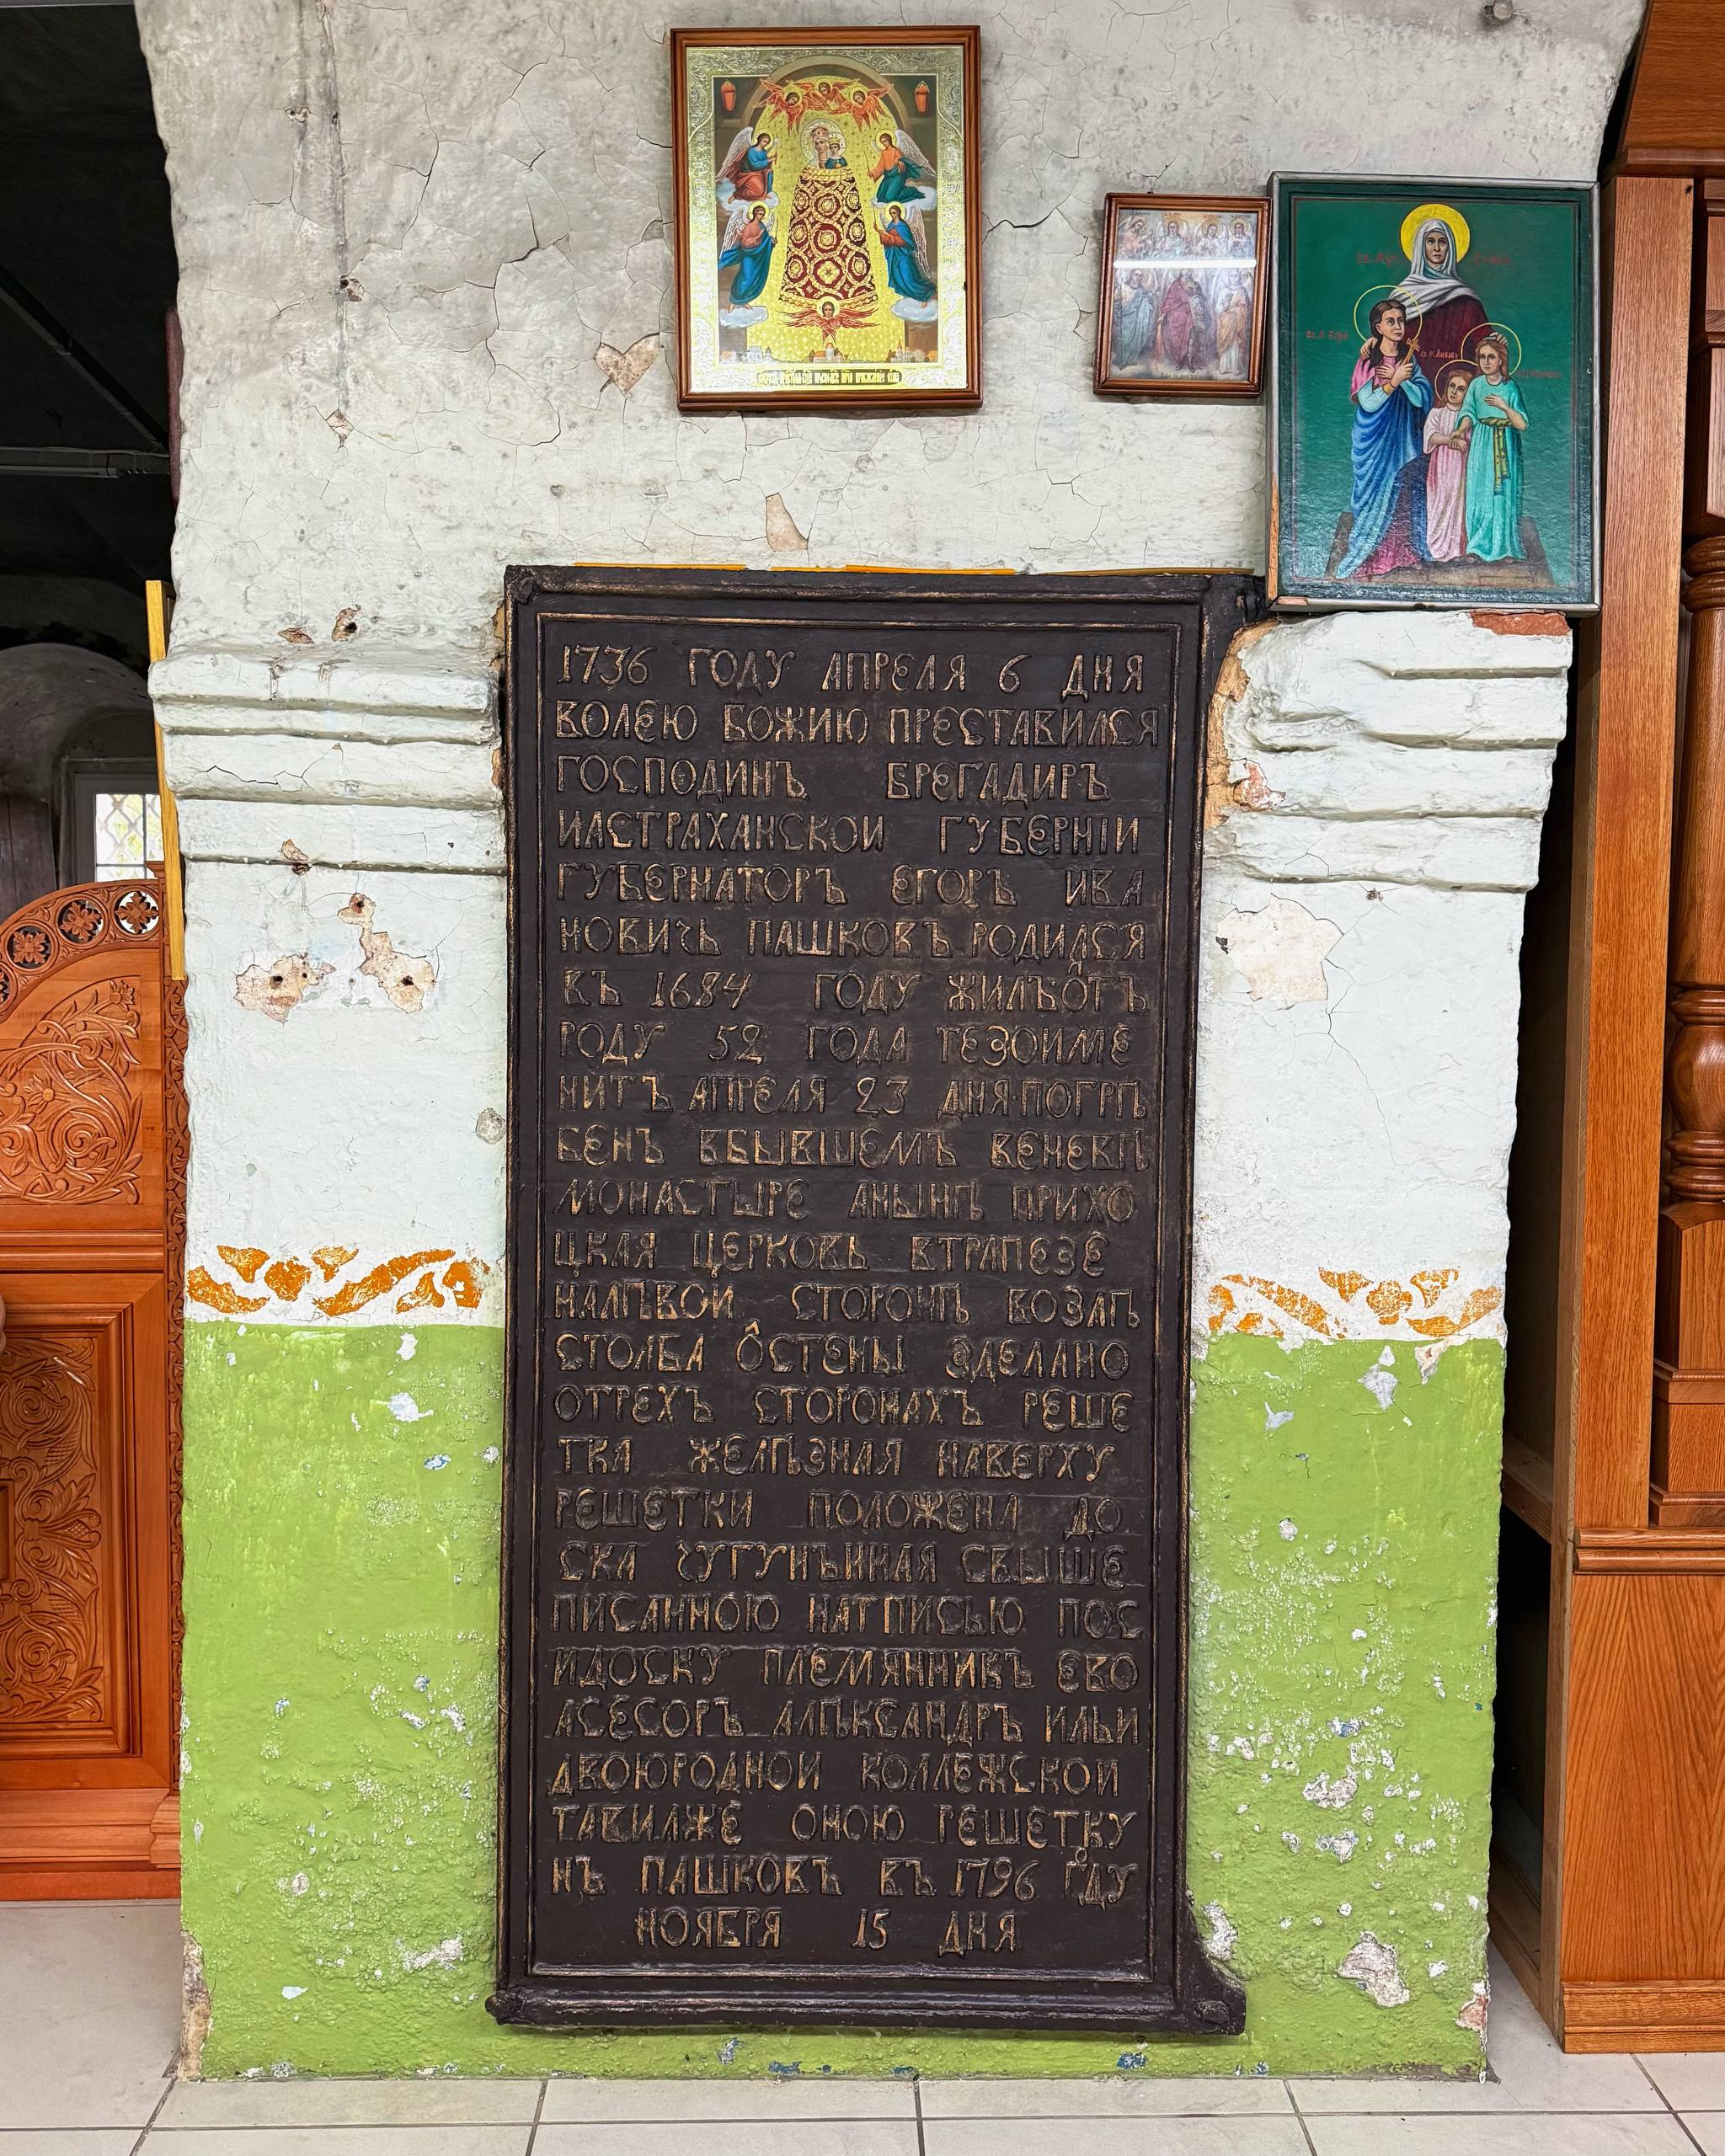 1736 ГОДУ АПРЕЛЯ 6 ДНЯ
ВОЛЕЮ БОЖИЮ ПРЕСТАВИЛСЯ
ГОСПОДИНЪ БРЕГАДИРЪ
ИАСТРАХАНСКОИ ГУБЕРНІИ
ГУБЕРНАТОРЪ ЕГОРЪ ИВА
НОВИЧЬ ПАШКОВЪ РОДИЛСЯ
ВЪ 1684 ГОДУ ЖИЛЪ ОТЪ
РОДУ 52 ГОДА ТЕЗОИМЕ
НИТЪ АПРЕЛЯ 23 ДНЯ ПОГРѢ
БЕНЪ ВБЫВШЕМЪ ВЕНЕВѢ
МОНАСТЫРЕ АНЫНѢ ПРИХО
ЦКАЯ ЦЕРКОВЬ ВТРАПЕЗЕ
НАЛѢВОИ СТОРОНѢ ВОЗЛѢ
СТОЛБА ОСТЕНЫ ЗДЕЛАНО
ОТРЕХЪ СТОРОНАХЪ РЕШЕ
ТКА ЖЕЛѢЗНАЯ НАВЕРХУ
РЕШЕТКИ ПОЛОЖЕНА ДО
СКА ЧУГУНЪННАЯ СВЫШЕ
ПИСАННОЮ НАТПИСЬЮ ПОС
ИДОСКУ ПЛЕМЯННИКЪ ЕВО
АСЕСОРЪ АЛѢКСАНДРЪ ИЛЬИ
ДВОЮРОДНОИ КОЛЛЕЖСКОИ
ТАВИЛЖЕ ОНОЮ РЕШЕТКУ
НЪ ПАШКОВЪ ВЪ 1796 ГОДУ
НОЯБРЯ 15 ДНЯ